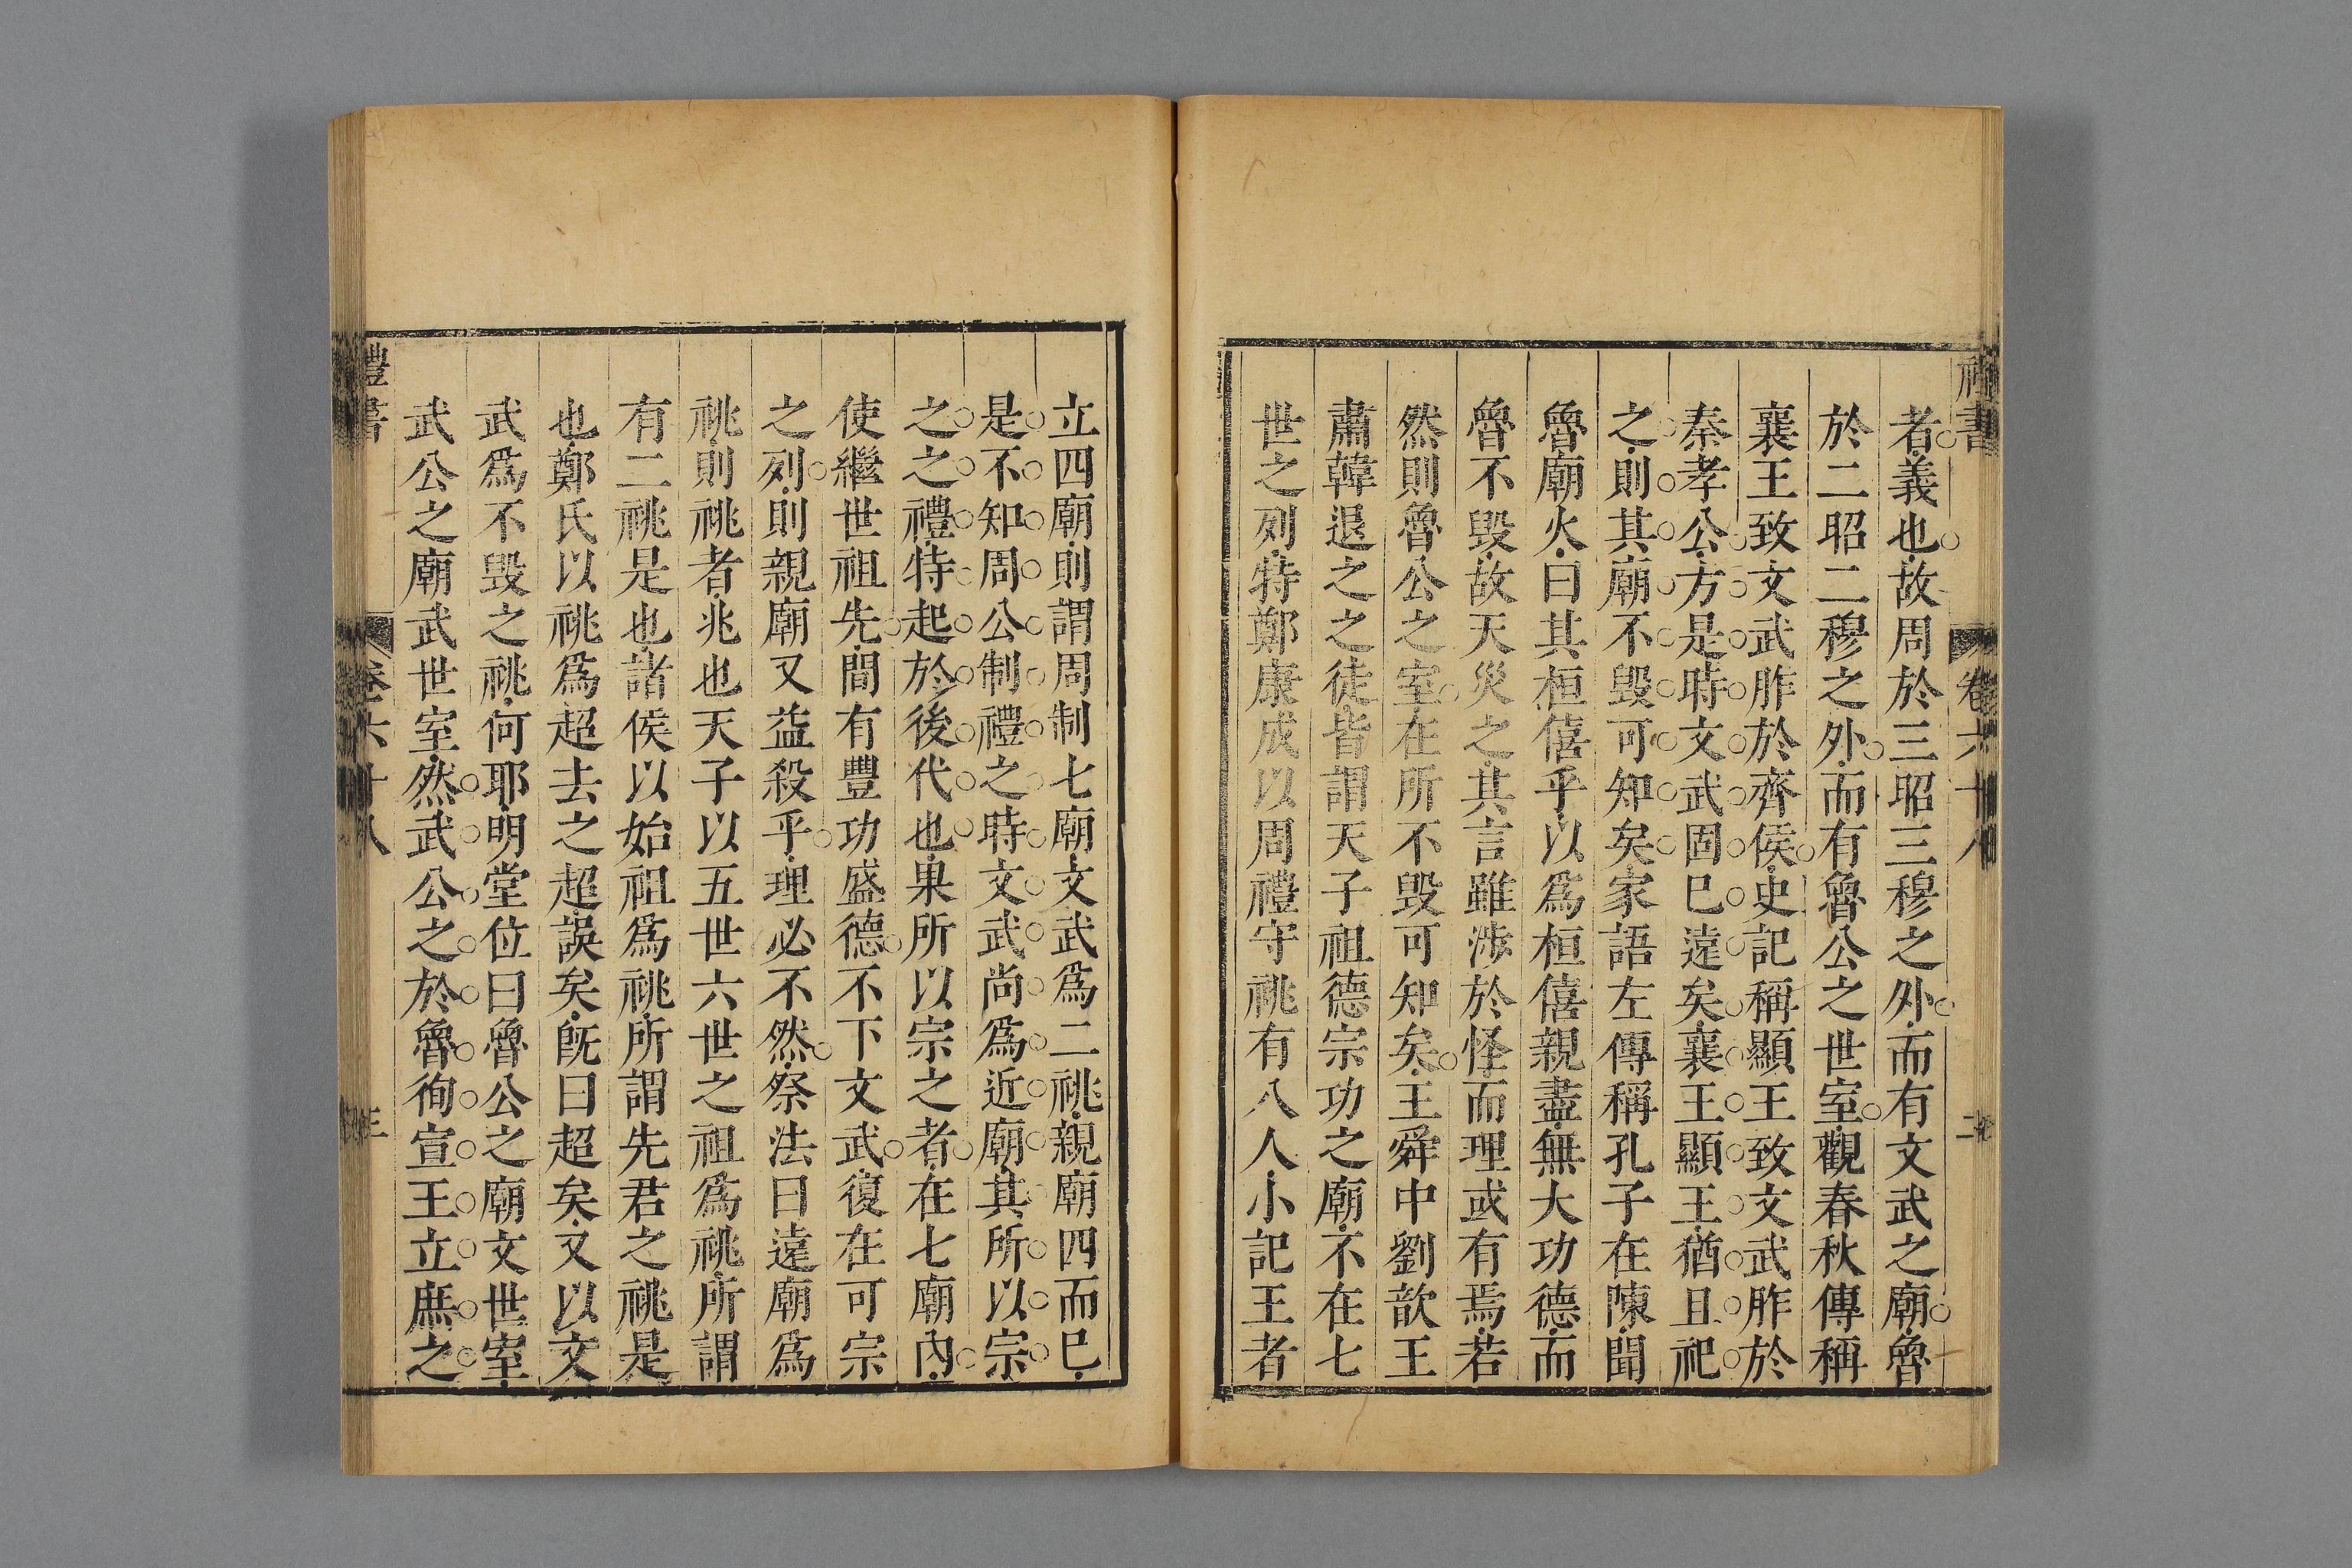 禮書 卷六十八 二
者義也故周於三昭三穆之外而有文武之廟魯
於二昭二穆之外而有魯公之世室觀春秋傳稱
襄王致文武胙於齊侯史記稱顯王致文武胙於
秦孝公方是時文武固巳遠矣襄王顯王猶且祀
之則其廟不毀可知矣家語左傳稱孔子在陳聞
魯廟火曰其桓僖乎以爲桓僖親盡無大功德而
魯不毀故天災之其言雖涉於怪而理或有焉若
然則魯公之室在所不毀可知矣王舜中劉歆王
肅韓退之之徒皆謂天子祖德宗功之廟不在七
世之列特鄭康成以周禮守祧有八人小記王者
立四廟則謂周制七廟文武爲二祧親廟四而巳
是不知周公制禮之時文武尚爲近廟其所以宗
之之禮特起於後代也果所以宗之者在七廟內
使繼世祖先間有豐功盛德不下文武復在可宗
之列則親廟又益殺乎理必不然祭法曰遠廟爲
祧則祧者兆也天子以五世六世之祖爲祧所謂
有二祧是也諸侯以始祖爲祧所謂先君之祧是
也鄭氏以祧爲超去之超誤矣旣曰超矣又以文
武爲不毀之祧何耶明堂位曰魯公之廟文世室
武公之廟武世室然武公之於魯徇宣王立庶之
禮書 卷六十八 三